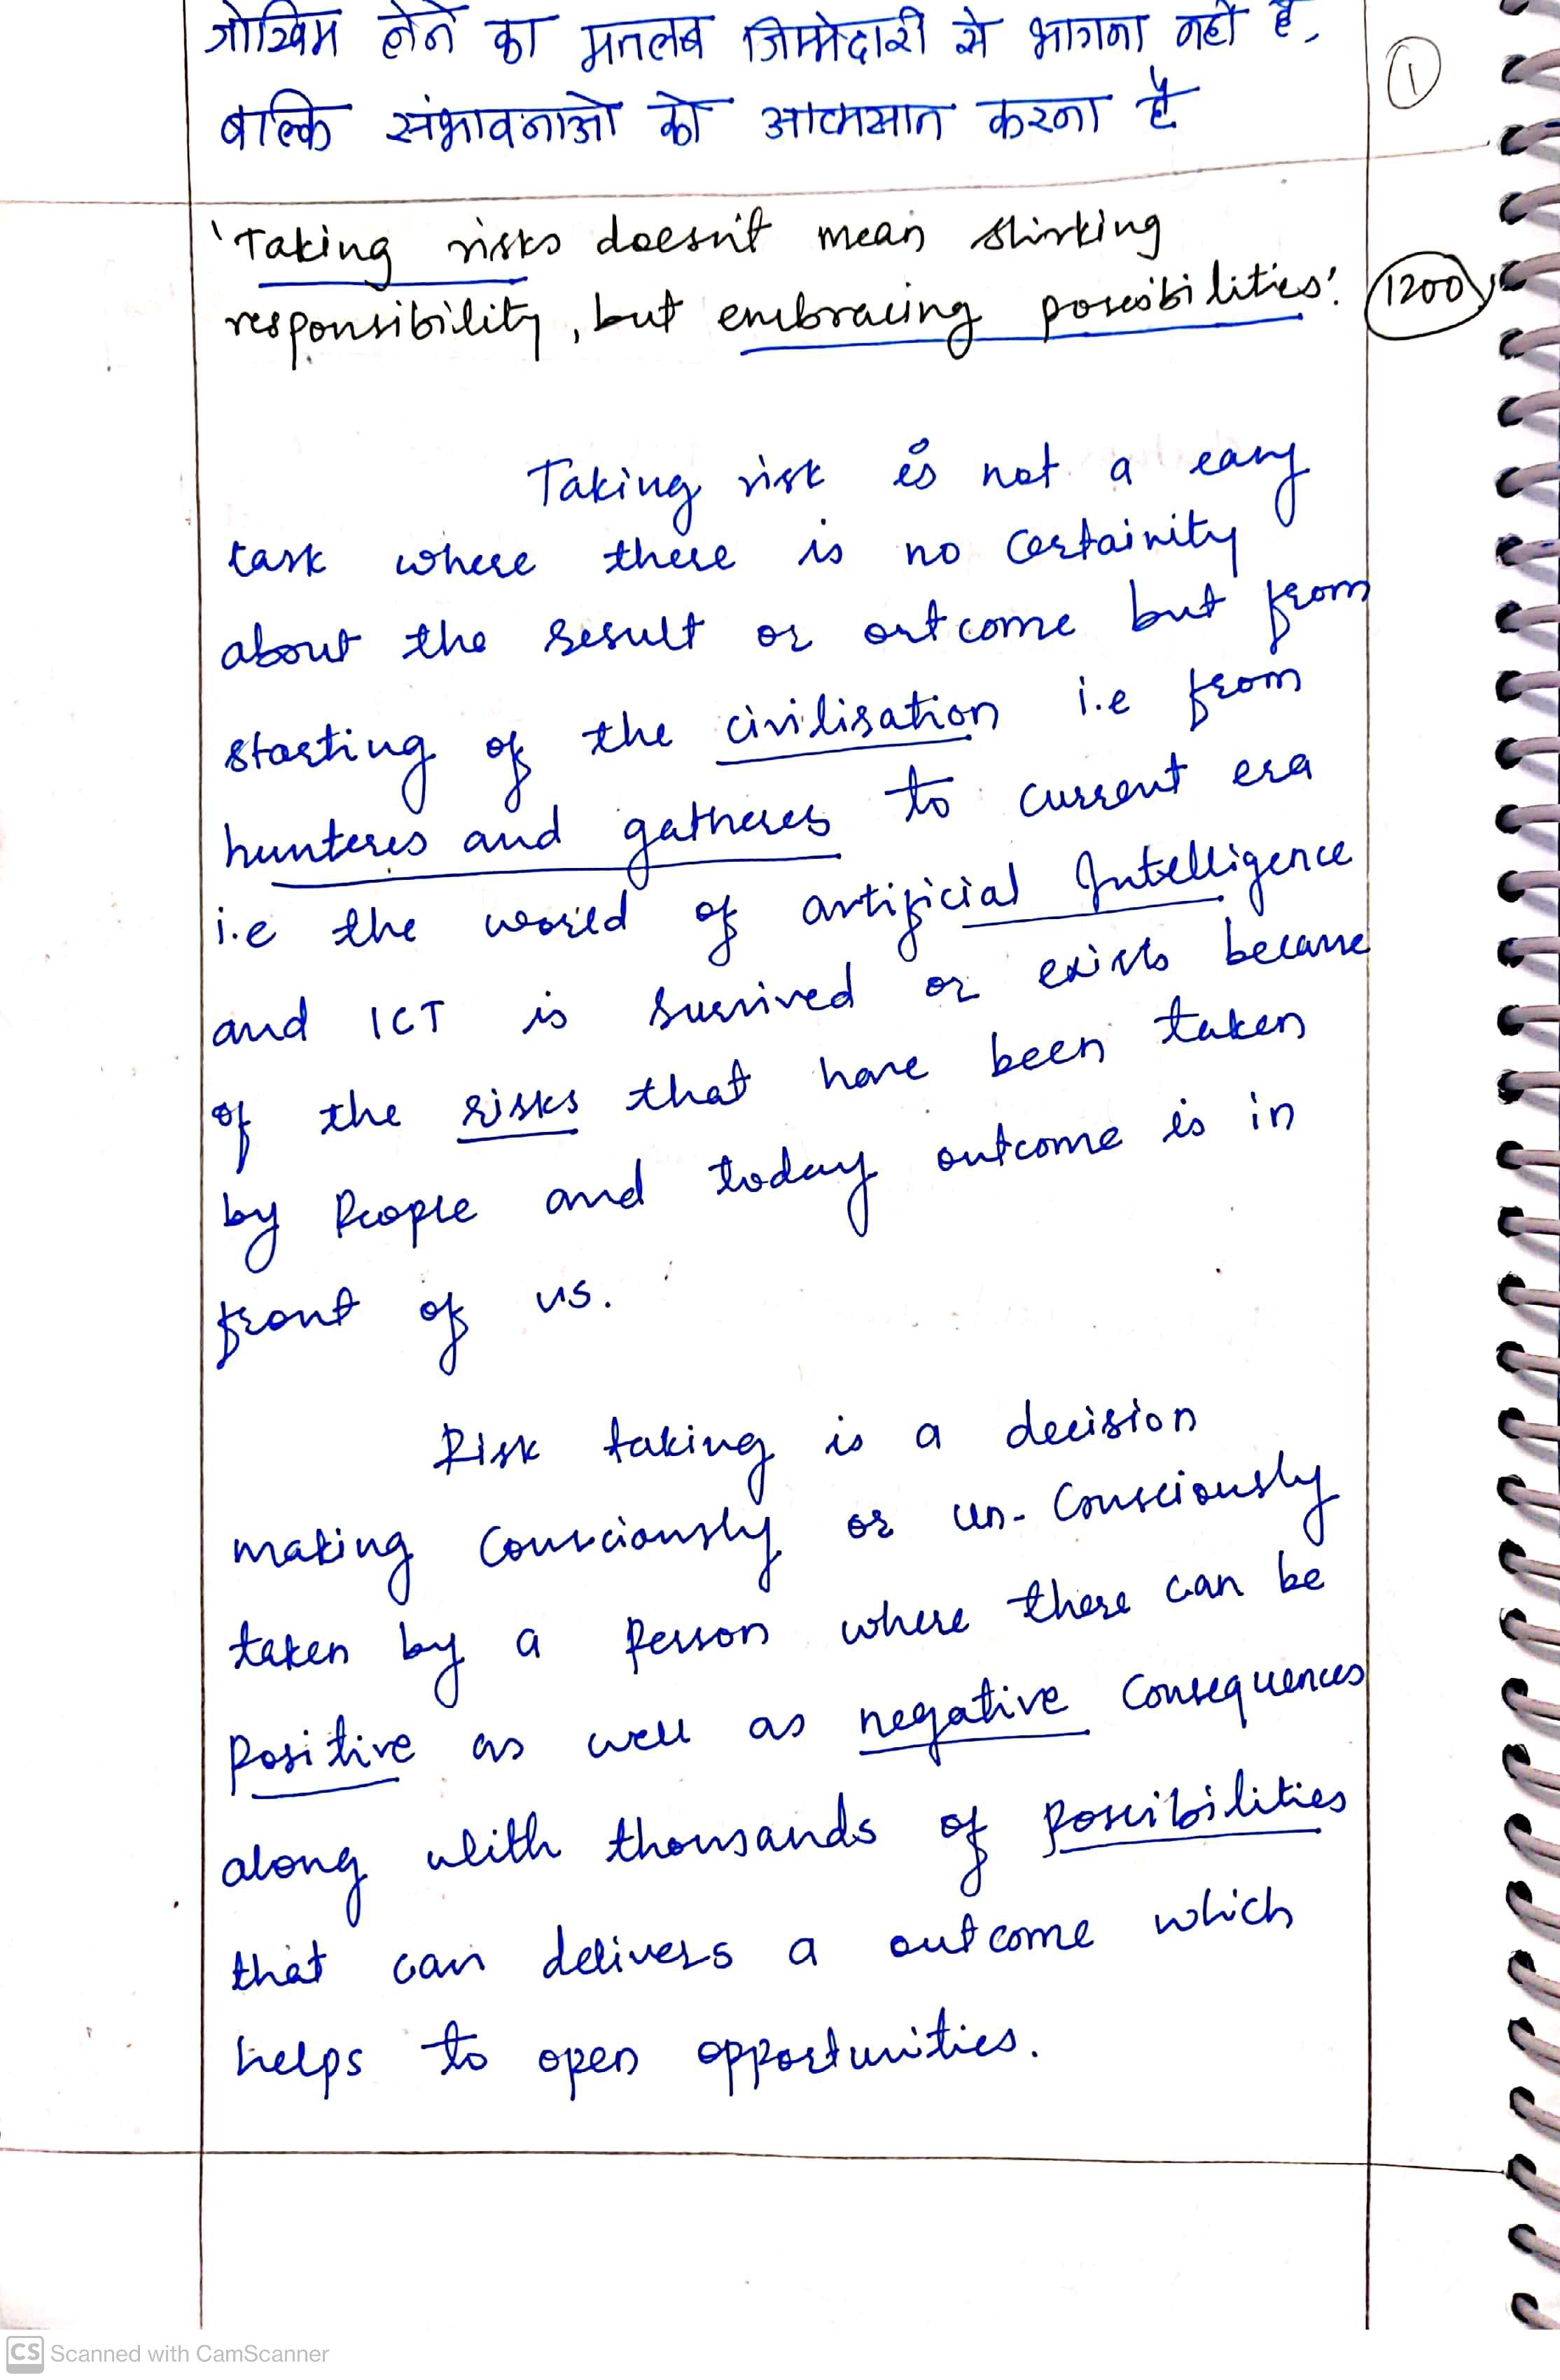 जोखिम लेने का मतलब जिम्मेदारी से भागना नहीं है,
बल्कि संभावनाओ को आत्मसात करना है
1
'Taking risks doesn't mean shirking
responsibility, but embracing possibilities'.
1200
Taking risk is not a easy
task where there is no certainity
about the result or outcome but from
starting of the civilisation i.e from
hunteres and gatheres to current era
i.e the world of artificial Intelligence
and ICT is survived or exists because
of the risks that have been taken
by People and today outcome is in
front of us.
Risk taking is a decision
making consciously or un-consciously
taken by a person where there can be
Positive as well as negative consequences
along with thousands of possibilities
that can delivers a outcome which
helps to open opportunities.
CS Scanned with CamScanner